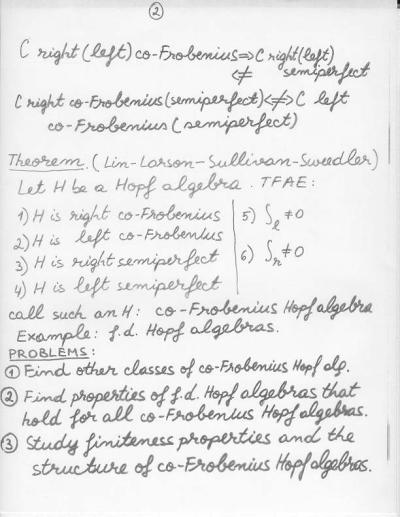 ②
C right (left) co-Frobenius ⇒ C right (left)
⇍ semiperfect
C right co-Frobenius (semiperfect) ⇎ C left
co-Frobenius (semiperfect)
Theorem. (Lin-Larson-Sullivan-Sweedler)
Let H be a Hopf algebra. TFAE:
1) H is right co-Frobenius
2) H is left co-Frobenius
3) H is right semiperfect
4) H is left semiperfect
5) ∫ₗ ≠ 0
6) ∫ᵣ ≠ 0
call such an H: co-Frobenius Hopf algebra
Example: f.d. Hopf algebras.
PROBLEMS:
① Find other classes of co-Frobenius Hopf alg.
② Find properties of f.d. Hopf algebras that
hold for all co-Frobenius Hopf algebras.
③ Study finiteness properties and the
structure of co-Frobenius Hopf algebras.